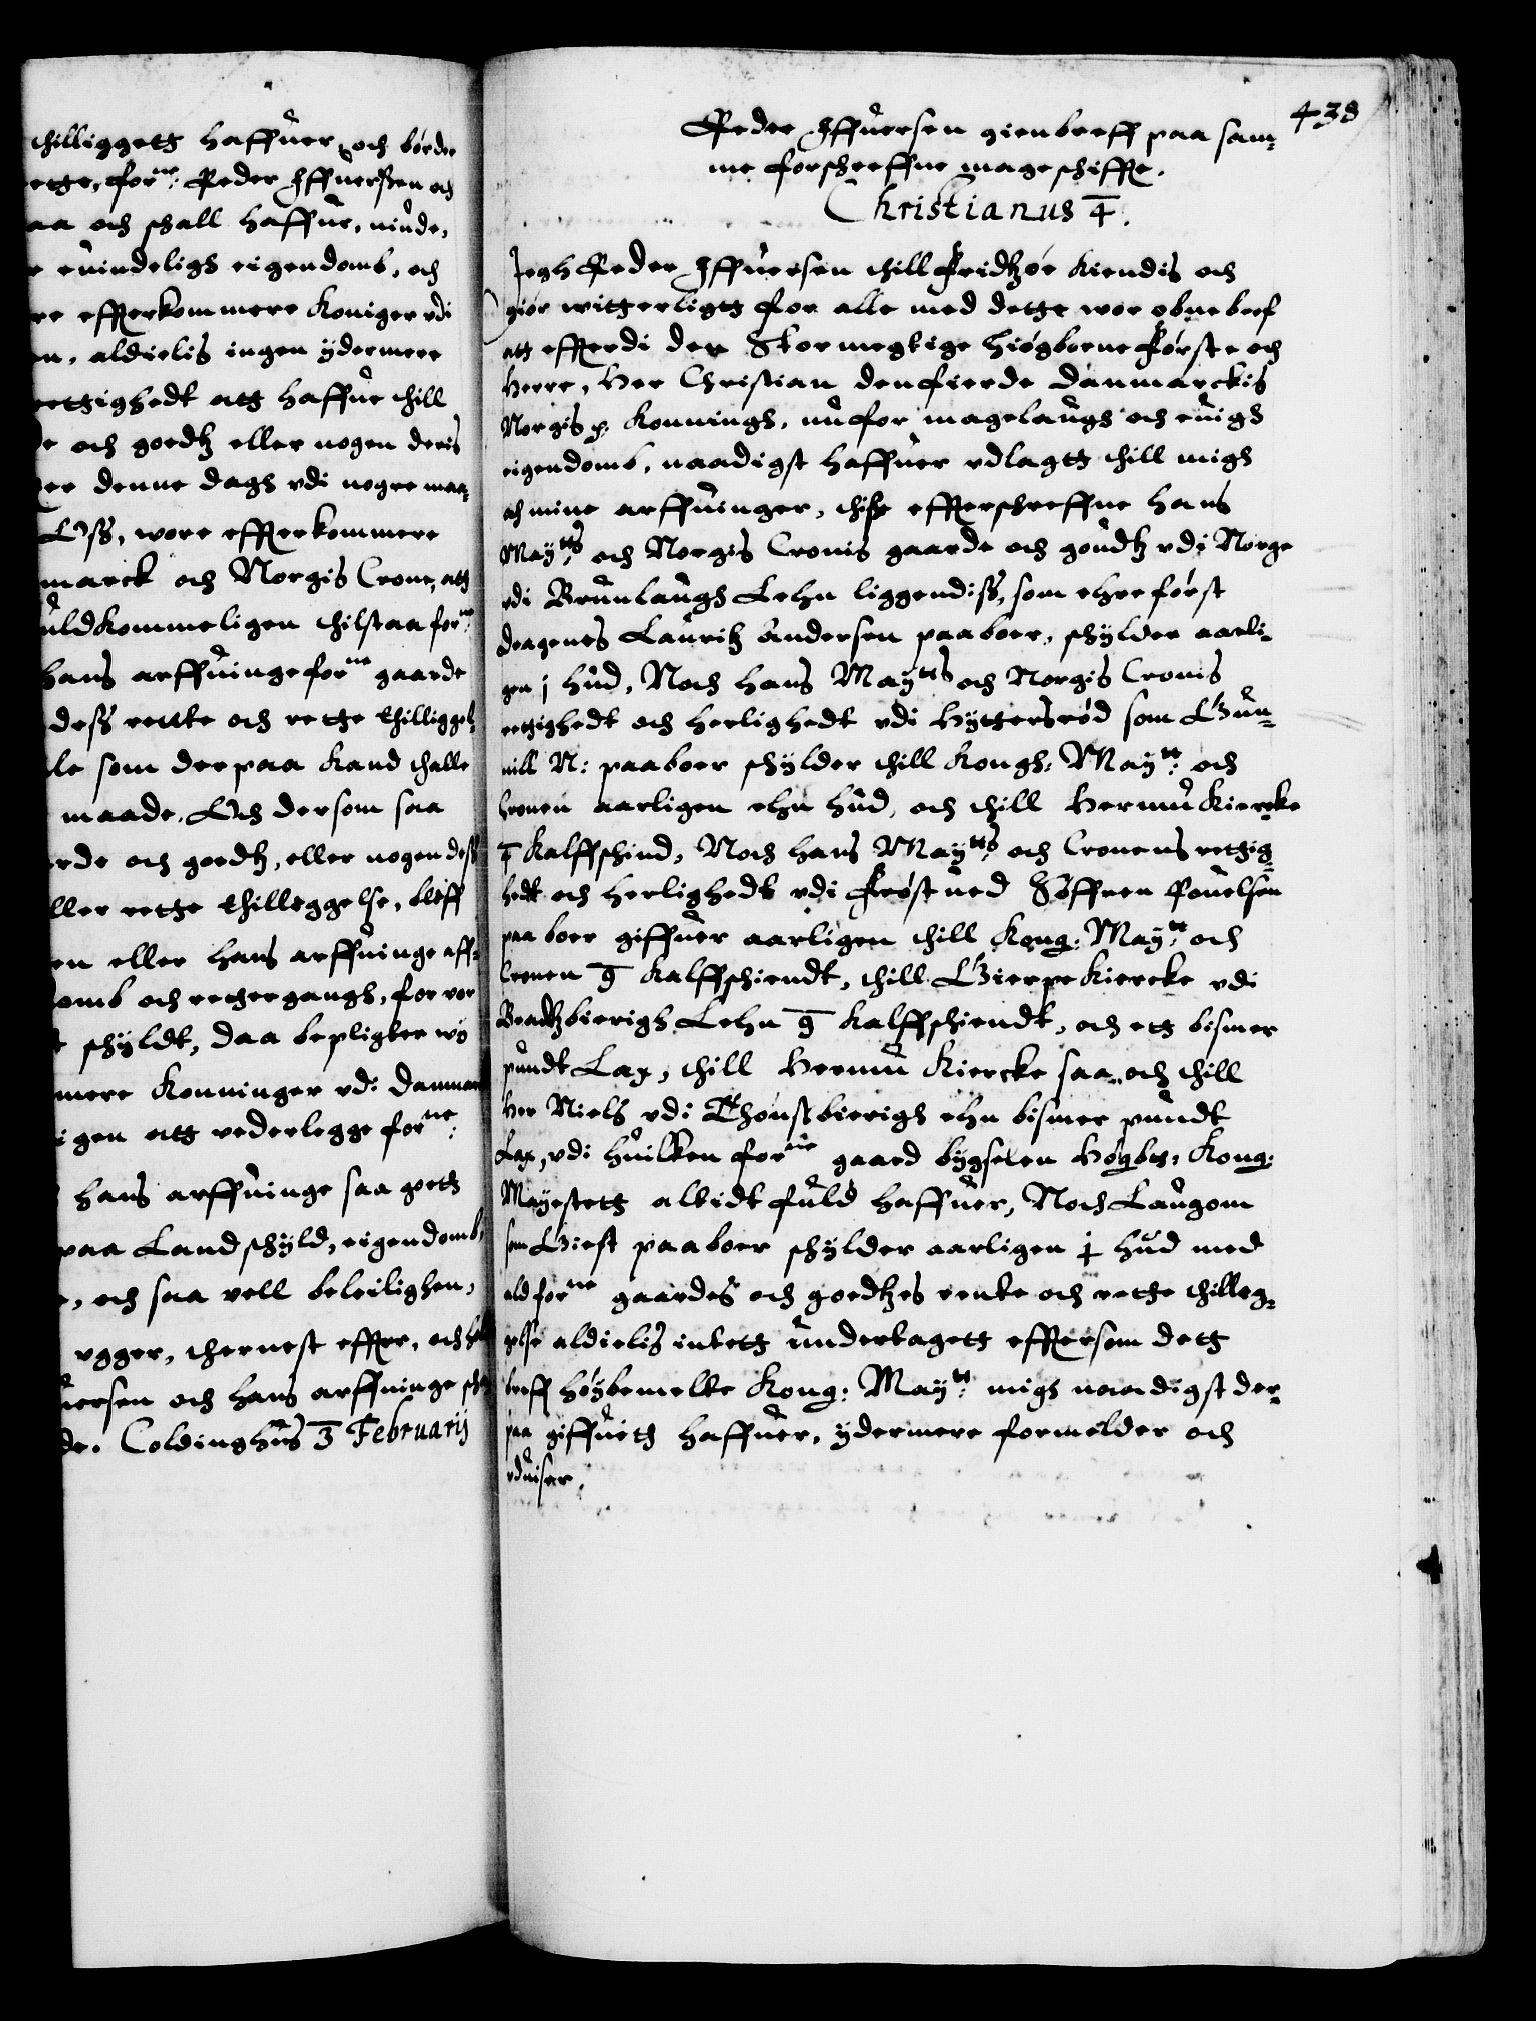 chilliggett haffuer, och børder
ette, for:ne Peder Iffuerßen och
aa och schall haffue, niude,
r euindeligh eigendomb, och
re effterkommere Koniger vdi
en, aldielis ingen ydermere
rettighedt att haffue thill
de och goedtz eller nogen deris
er denne dagh vdi nogre maa-
Oss, wore effterkommere
marck och Norgis Crone, att
uldkommeligen thilstaa for:ne
hans arffuinge for:ne gaarde
dess rentte och rette thilliggel-
le som der paa kand thalle
maade. Och dersom saa
rde och goedtz, eller nogen dess
ller rette thilleggelse, bleff
en eller hans arffuinge aff-
omb och rettergangh, for vor
t schyldt, daa bepligter wy
mere Konninger vdi Danmarck
igen att vederlegge for:ne
hans arffuinge saa gott
paa Landschyld, eigendomb,
e, och saa vell beleilighen,
vgger, thernest effter, och hol
uersen och hans arffuinge sch
de. Coldinghus 3 Februarij
438
Peder Iffuersen gienbreff paa sam-
me forschreffne mageschiffte.
Christianus 4.
Jegh Peder Iffuersen thill Fridtzøe kiendis och
giør witterligtt for alle med dette wor obne bref
att effterdi den Stormegtige høgborne Første och
Herre, Her Christian den fierde Danmarckis
Norgis p. Konningh, nu for magelaugh och euigh
eigendomb, naadigst haffuer vdlagtt thill migh
och mine arffuinger, thisse effterschreffne hans
May:tts och Norgis Cronis gaarde och goudtz vdi Norge
vdi Brunlaugs Lehn liggendiss, som ehre først
Dragenes Lauritz Andersen paaboer, schylder aarli-
gen j hud, Noch hans May:tts och Norgis Cronis
rettighedt och herlighedt vdi Hyttersrød som Gun-
nill N: paaboer schylder thill Kongh: May:tt och
Cronen aarligen ehn hud, och thill Hermu Kiercke
4 Kalffschind, Noch hans May:tts och Cronens rettig-
hedt och herlighedt vdi Frøstued Søffren Pouelsen
paaboer giffuer aarligen thill Kong: May:tt och
Cronen 9 Kalffschiendt, thill Gierpe Kiercke vdi
Bradtzbierigh Lehn 9 Kalffschiendt, och ett bismer
pundt Lax, thill Hermu Kiercke saa och thill
Her Niels vdi Thønsbierigh ehn bismer pundt
Lax, vdi huilken for:ne gaard bygselen Høgbte: Kong:
Mayestett altidt fuld haffuer, Noch Laugom
som Giest paaboer schylder aarligen j hud med
ald for:ne gaardes och goedtzes rente och rette thilleg-
gelse aldielis intett undertagett effter som dett
breff høybemelte Kong: May:tt migh naadigst der-
paa giffuett haffuer, ydermere formelder och
vduiser.